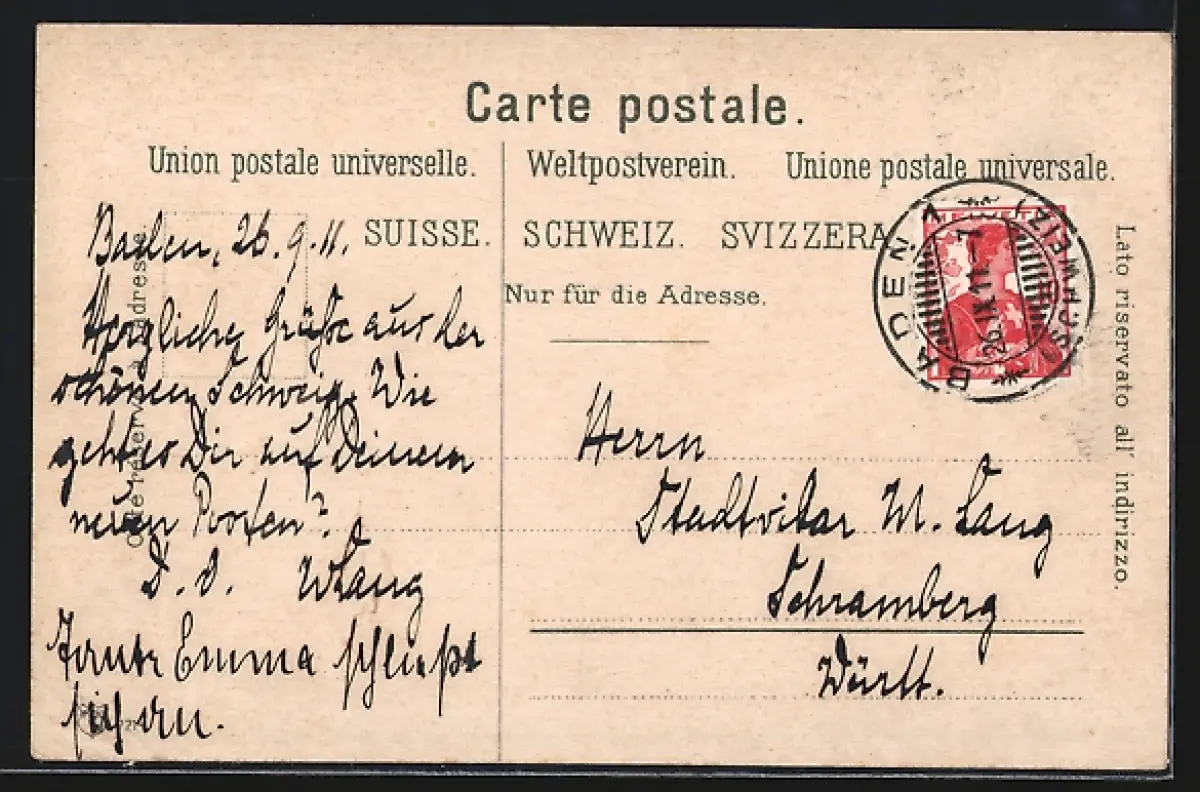 Carte postale.
Union postale universelle. Weltpostverein. Unione postale universale.
SUISSE. SCHWEIZ. SVIZZERA
Nur für die Adresse.
Lato riservato all' indirizzo.
BADEN 1 (SCHWEIZ)
26.IX.11.–7
HELVETIA
Baden, 26.9.11.
Herzliche Grüße aus der
schönen Schweiz. Wie
geht es Dir auf Deinem
neuen Posten?
D. O. WLang
Emma schließt
sich an.
Herrn
Stadtvikar W. Lang
Schramberg
Württ.